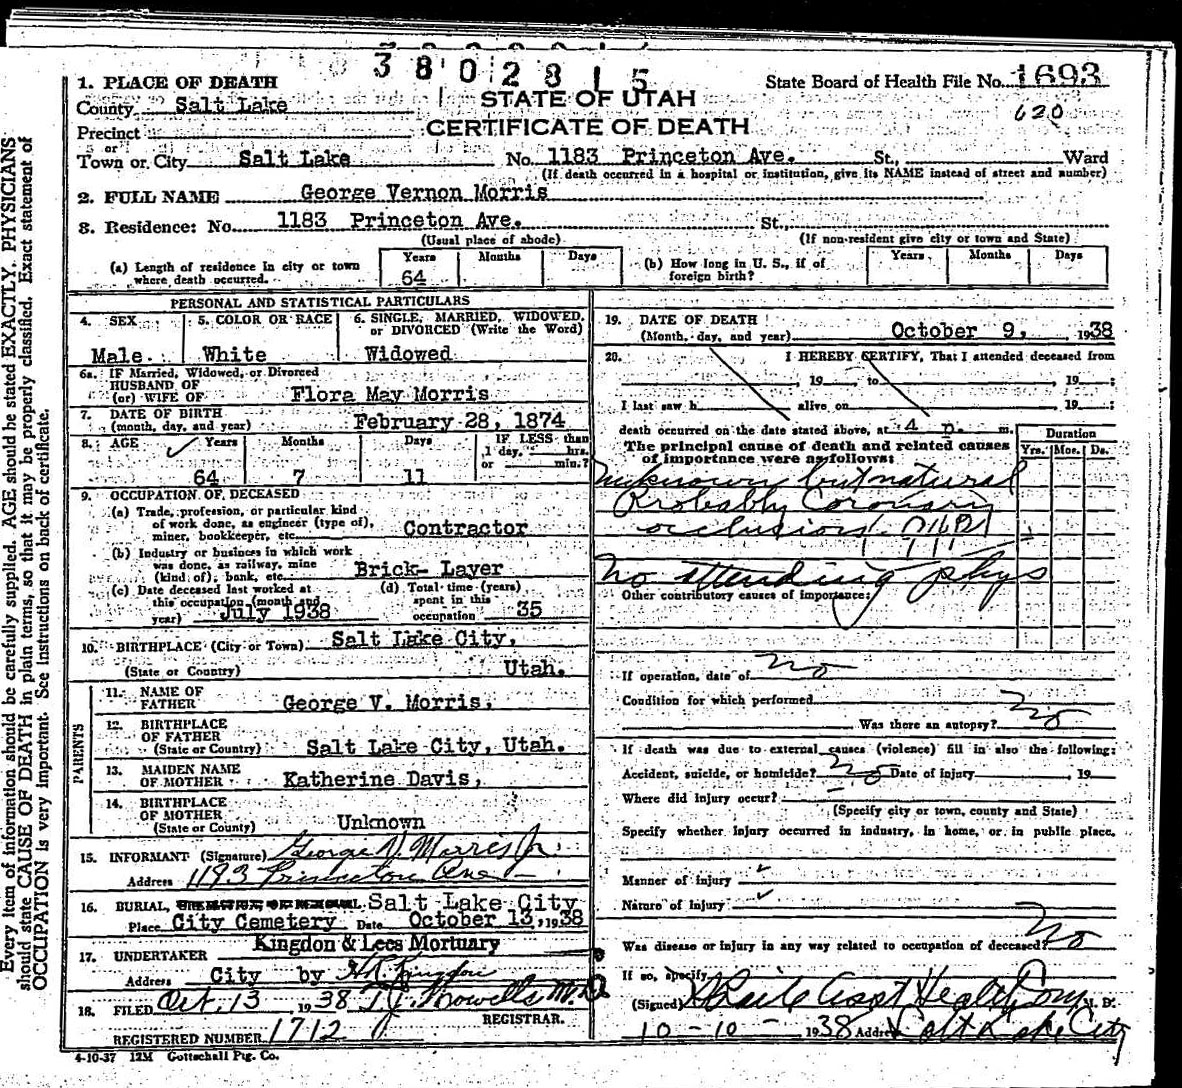 3802815
1. PLACE OF DEATH
State Board of Health File No. 1693
County Salt Lake
STATE OF UTAH
620
Precinct
CERTIFICATE OF DEATH
or
Town or City Salt Lake No. 1183 Princeton Ave. St., Ward
(If death occurred in a hospital or institution, give its NAME instead of street and number)
2. FULL NAME George Vernon Morris
3. Residence: No. 1183 Princeton Ave. St.,
(Usual place of abode) (If non-resident give city or town and State)
(a) Length of residence in city or town where death occurred. Years 64 Months Days
(b) How long in U. S., if of foreign birth? Years Months Days
PERSONAL AND STATISTICAL PARTICULARS
4. SEX 5. COLOR OR RACE 6. SINGLE, MARRIED, WIDOWED, or DIVORCED (Write the Word)
Male White Widowed
6a. IF Married, Widowed, or Divorced
HUSBAND OF
(or) WIFE OF Flora May Morris
7. DATE OF BIRTH
(month, day, and year) February 28, 1874
8. AGE Years Months Days IF LESS than
1 day, hrs.
or min.?
64 7 11
9. OCCUPATION OF DECEASED
(a) Trade, profession, or particular kind
of work done, as engineer (type of),
miner, bookkeeper, etc. Contractor
(b) Industry or business in which work
was done, as railway, mine
(kind of), bank, etc. Brick- Layer
(c) Date deceased last worked at
this occupation (month and
year) July 1938
(d) Total time (years)
spent in this
occupation 35
10. BIRTHPLACE (City or Town) Salt Lake City,
(State or Country) Utah.
PARENTS
11. NAME OF
FATHER George V. Morris.
12. BIRTHPLACE
OF FATHER
(State or Country) Salt Lake City, Utah.
13. MAIDEN NAME
OF MOTHER Katherine Davis,
14. BIRTHPLACE
OF MOTHER
(State or County) Unknown
15. INFORMANT (Signature) George V. Morris Jr.
Address 1193 Princeton Ave
16. BURIAL, Salt Lake City
Place City Cemetery Date October 13, 1938
Kingdon & Lees Mortuary
17. UNDERTAKER
Address City by H.R. Kingdon
18. FILED Oct. 13 1938 T.J. Howells M.D.
REGISTRAR.
REGISTERED NUMBER 1712
4-10-37 12M Gottschall Ptg. Co.
19. DATE OF DEATH
(Month, day, and year) October 9, 1938
20. I HEREBY CERTIFY, That I attended deceased from
, 19 to , 19 ;
I last saw h alive on , 19 ;
death occurred on the date stated above, at 4 p. m.
The principal cause of death and related causes
of importance were as follows:
Duration
Yrs. Mos. Ds.
Unknown but natural
Probably Coronary
occlusion
No attending phys
Other contributory causes of importance:
If operation, date of no
Condition for which performed
Was there an autopsy? no
If death was due to external causes (violence) fill in also the following:
Accident, suicide, or homicide? no Date of injury , 19
Where did injury occur?
(Specify city or town, county and State)
Specify whether injury occurred in industry, in home, or in public place.
Manner of injury
Nature of injury
Was disease or injury in any way related to occupation of deceased? no
If so, specify
(Signed) Asst Health Com M. D.
10-10- 1938 Address Salt Lake City
Every item of information should be carefully supplied. AGE should be stated EXACTLY. PHYSICIANS
should state CAUSE OF DEATH in plain terms, so that it may be properly classified. Exact statement of
OCCUPATION is very important. See instructions on back of certificate.